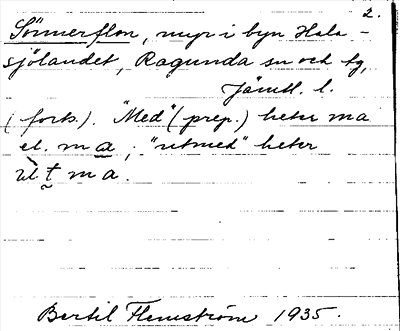 2.
Sönnerflon, myr i byn Hala-
sjölandet, Ragunda sn och tg,
Jämtl. l.
(forts.). "Med" (prep.) heter ma
el. ma; "utmed" heter
ùtma.
Bertil Flemström 1935.